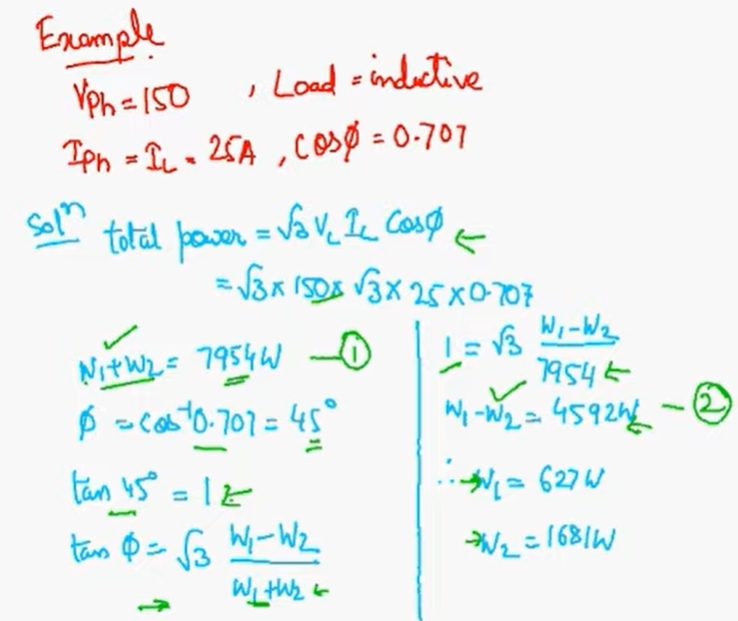 Example
Vph = 150 , Load = inductive
Iph = IL = 25A , cosϕ = 0.707
Solⁿ total power = √3 VL IL Cosϕ ←
= √3 × 150 × √3 × 25 × 0.707
✓
W1 + W2 = 7954W — ①
ϕ = cos⁻¹0.707 = 45°
tan 45° = 1 ←
tan ϕ = √3 (W1 - W2) / (W1 + W2) ←
→
1 = √3 (W1 - W2) / 7954 ←
✓
W1 - W2 = 4592W ← — ②
∴ → W1 = 627W
→ W2 = 1681W